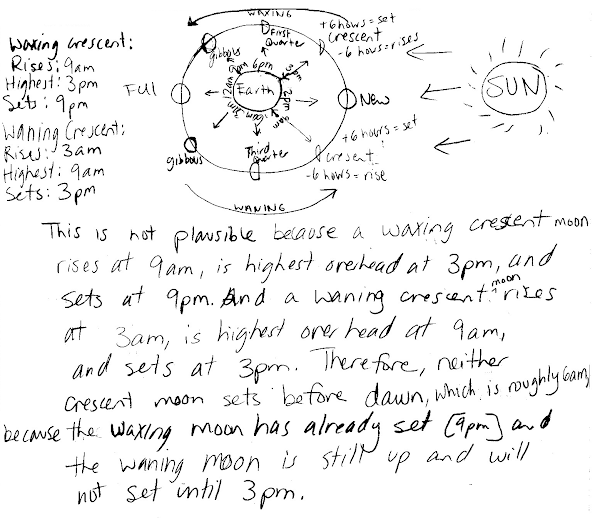 Waxing crescent:
Rises: 9am
Highest: 3pm
Sets: 9pm
Waning Crescent:
Rises: 3am
Highest: 9am
Sets: 3pm
WAXING
+6 hours = set
Crescent
-6 hours = rises
First
Quarter
gibbous
Full
9pm
6pm
3pm
12am
Earth
3am
6am
9am
New
SUN
+6 hours = set
Cresent
-6 hours = rise
Third
Quarter
gibbous
WANING
This is not plausible because a waxing crescent moon
rises at 9am, is highest overhead at 3pm, and
sets at 9pm. And a waning crescent moon rises
at 3am, is highest overhead at 9am,
and sets at 3pm. Therefore, neither
crescent moon sets before dawn, which is roughly 6am,
because the waxing moon has already set [9pm] and
the waning moon is still up and will
not set until 3pm.